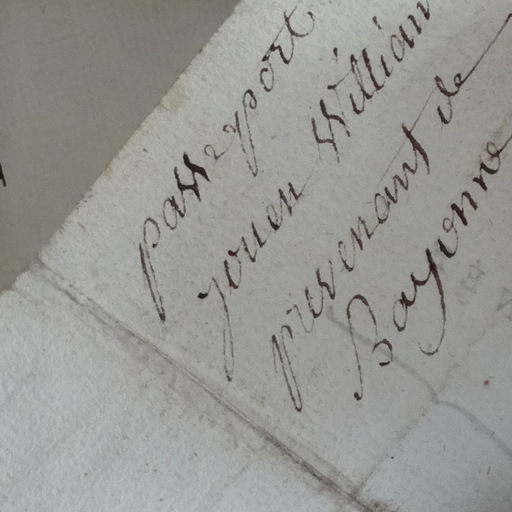 passeport
jouen William
provenant de
Bayonne